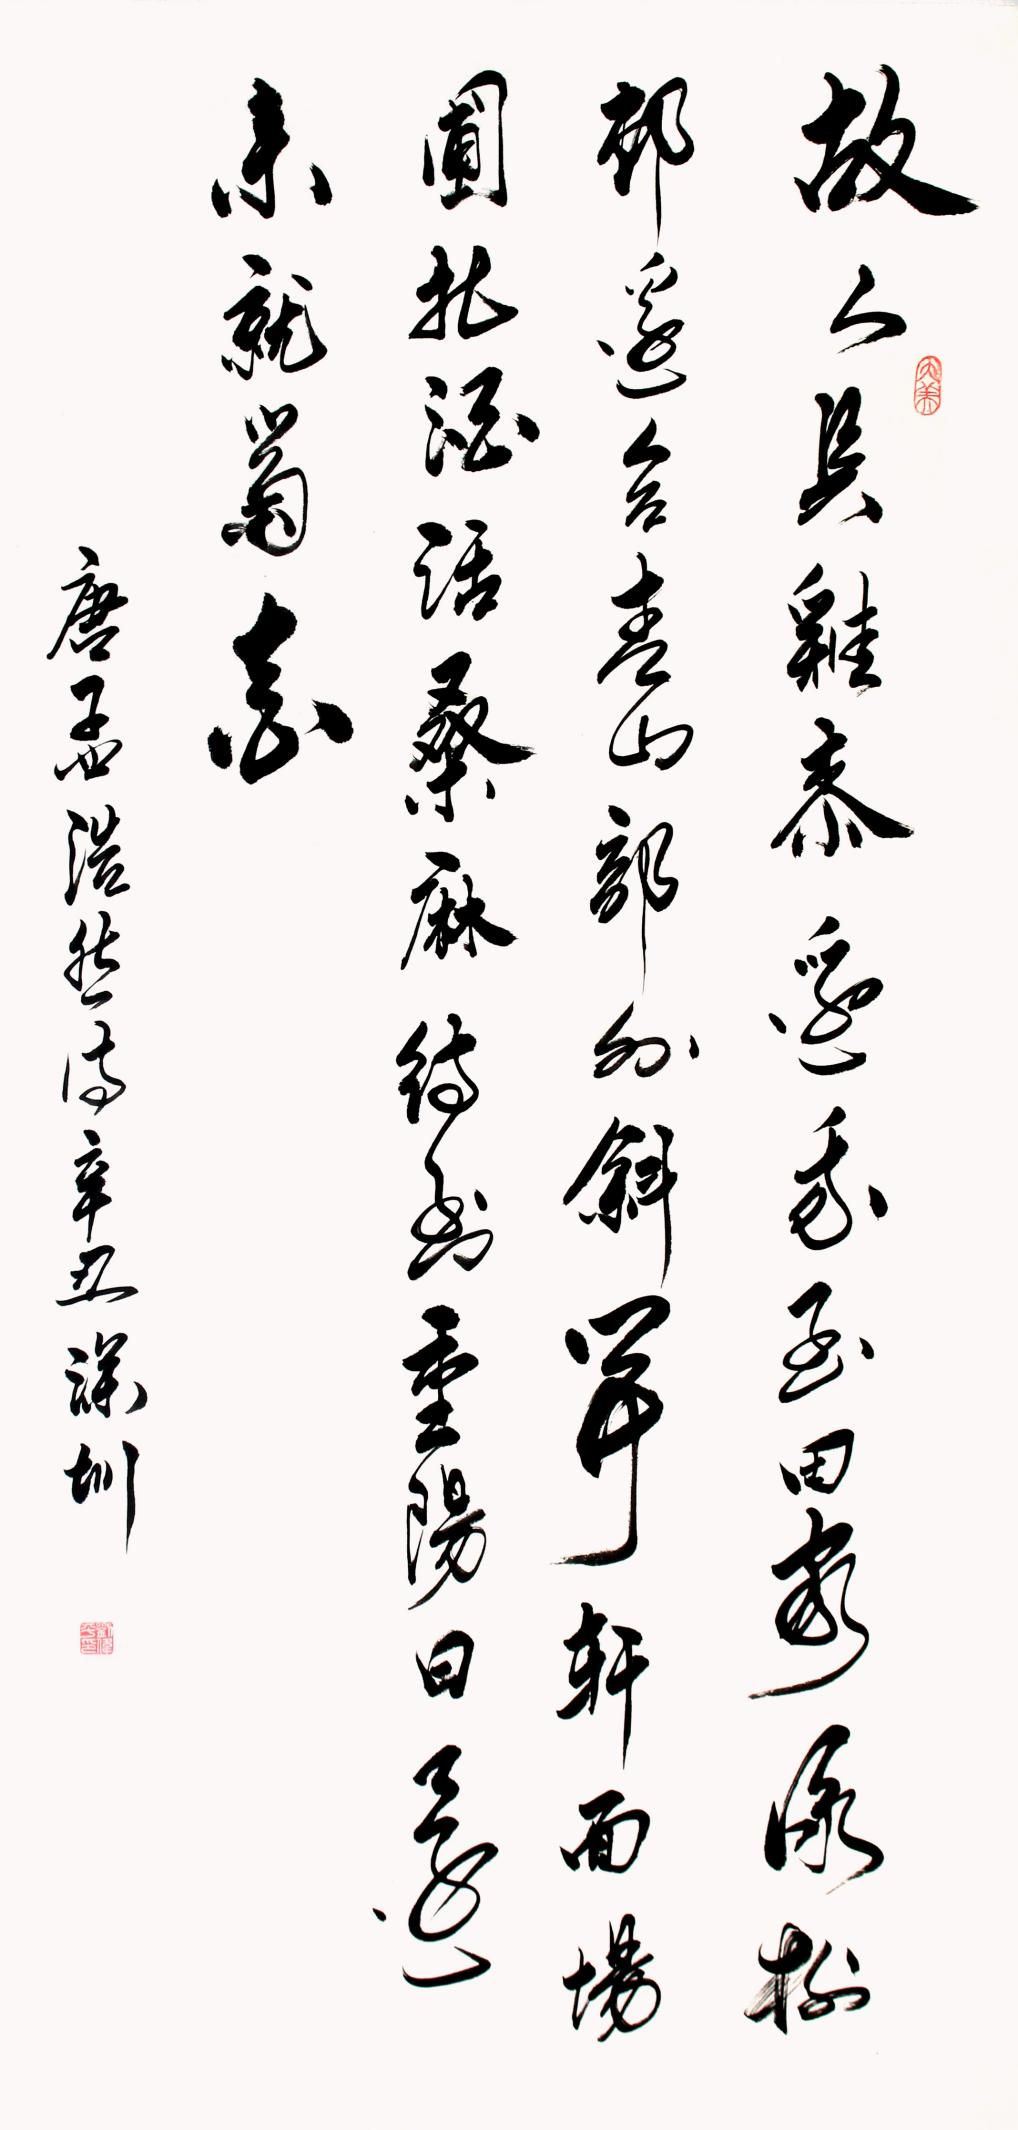 故人具雞黍邀我至田家綠樹
邨邊合青山郭外斜開軒面場
圃把酒話桑麻待到重陽日還
来就菊花
唐孟浩然詩辛丑深圳